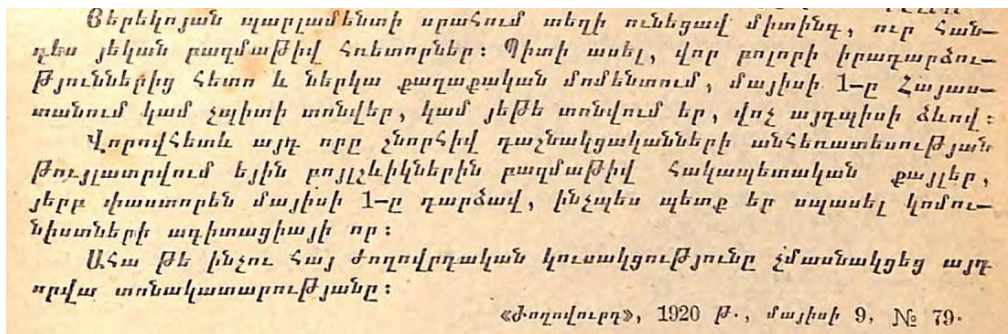 Ցերեկոյան պարլամենտի սրահում տեղի ունեցավ միտինգ, ուր հան–
դես յեկան բազմաթիվ հռետորներ: Պիտի ասել, վոր բոլորի իրադարձու–
թյուններից հետո և ներկա քաղաքական մոմենտում, մայիսի 1–ը Հայաս–
տանում կամ չպիտի տոնվեր, կամ յեթե տոնվում եր, վոչ այդպիսի ձևով:
Վորովհետև այդ որը շնորհիվ դաշնակցականների անհեռատեսության
թույլատրվում եյին բոլշևիկներին բազմաթիվ հակապետական քայլեր,
յերբ փաստորեն մայիսի 1–ը դարձավ, ինչպես պետք եր սպասել կոմու–
նիստների ագիտացիայի որ:
Ահա թե ինչու Հայ ժողովրդական կուսակցությունը չմասնակցեց այդ
որվա տոնակատարությանը:
«Ժողովուրդ», 1920 թ., մայիսի 9, № 79.